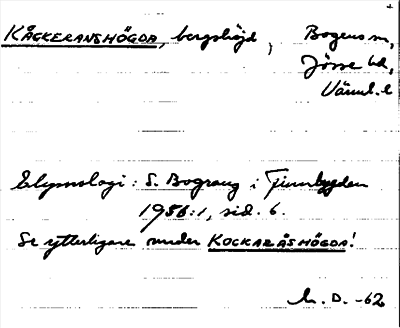 KÅCKERANSHÖGDA, bergshöjd, Bogens sn,
Jösse hd,
Värml. l.
Etymologi: S. Bograng i Finnbygden
1956:1, sid. 6.
Se ytterligare under KOCKARÅSHÖGDA!
L. D. -62